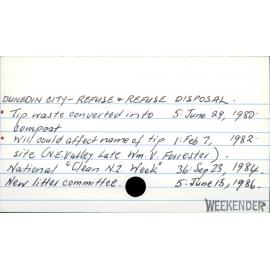 DUNEDIN CITY - REFUSE & REFUSE DISPOSAL.
• Tip waste converted into 5: June 29, 1980.
compost
• Will could affect name of tip 1: Feb 7, 1982
site (N.E. Valley Late Wm. V. Forrester).
National "Clean N.Z. Week" 36: Sep 23, 1984.
New litter committee. 5: June 15, 1986.
WEEKENDER